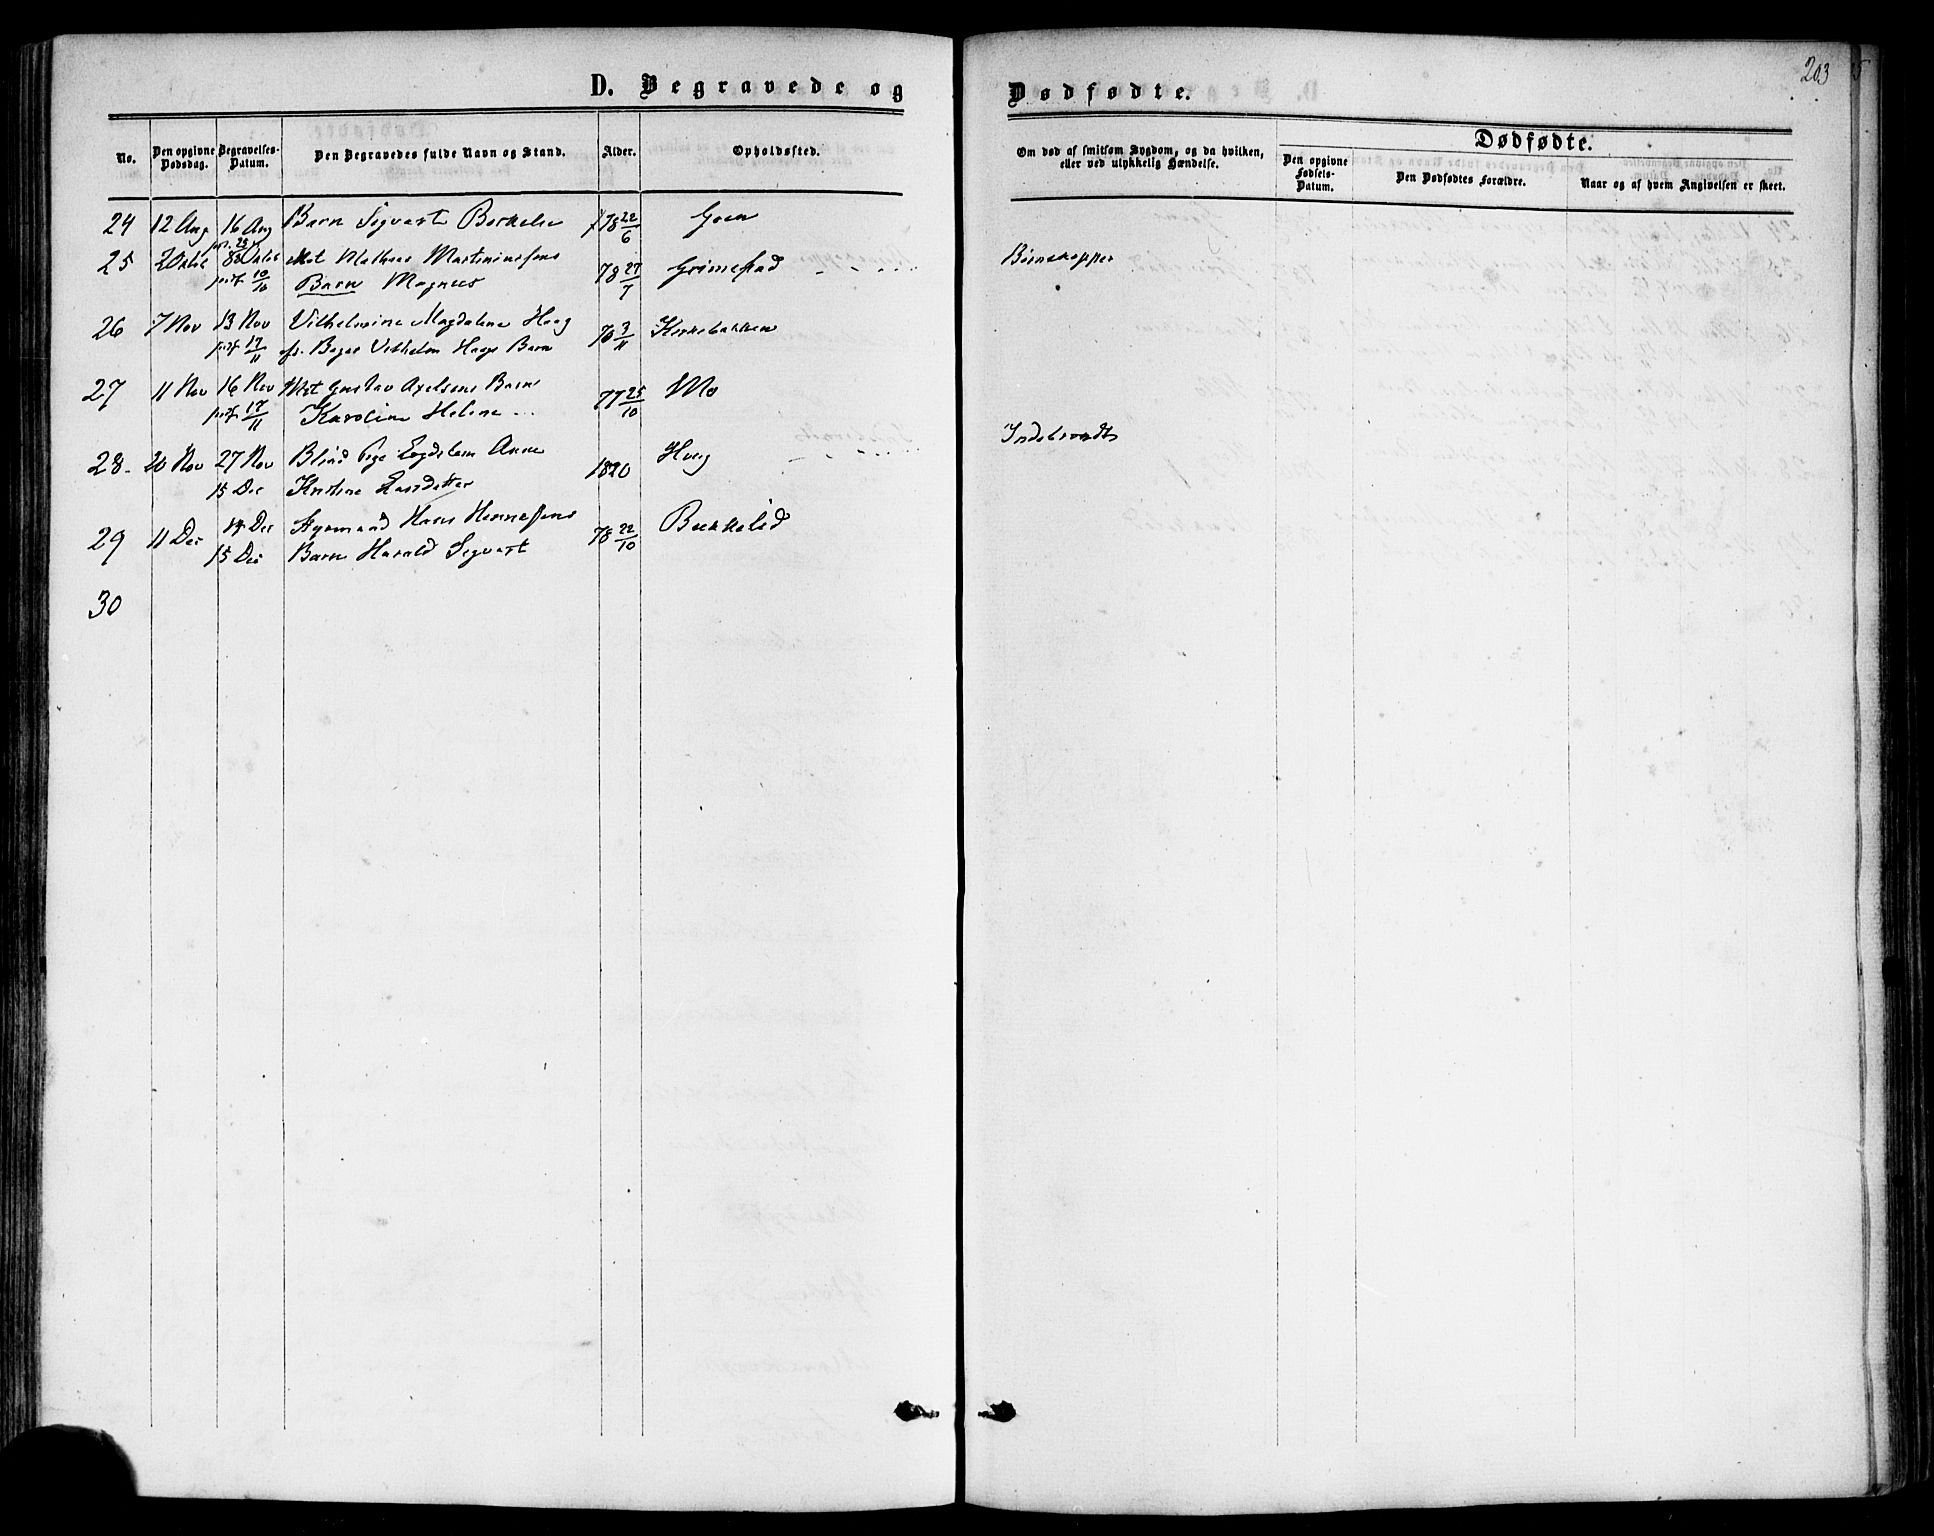 D. Begravede og
No.
Den opgivne Dødsdag.
Begravelses-Datum.
Den Begravedes fulde Navn og Stand.
Alder.
Opholdssted.
24 12 Aug 16 Aug Barn Sigvart 78 22/6 Goen
25 8 Oktbr Mathias Martiniussens
10/10 Barn Magnus 78 27/7 Grimestad
26 7 Nov 13 Nov Vilhelmine Magdalene Haog 70 3/11 Kirkebakken
17/11 Vilhelm Haogs Barn
27 11 Nov 16 Nov Mat Gustav Axelsens Barn 77 25/10 Mo
17/11 Karoline Helene
28 20 Nov 27 Nov Blind Pige Anne 1820 Houg
15 Dec Larsdatter
29 11 Dec 14 Dec Styrmand Hans 78 22/10 Bekkelid
15 Dec Barn Harald Sigvart
30
203
Dødfødte.
Om død af smitsom Sygdom, og da hvilken,
eller ved ulykkelig Hændelse.
Dødfødte.
Den opgivne Fødsels-Datum.
Den Dødfødtes Forældre.
Naar og af hvem Angivelsen er skeet.
Børnekopper
Indebrændt